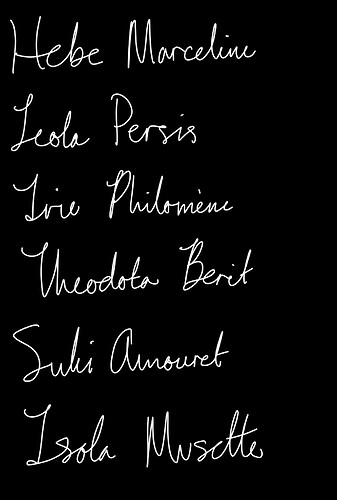 Hebe Marceline
Leola Persis
Ivie Philomène
Theodota Berit
Suki Amouret
Isola Musette